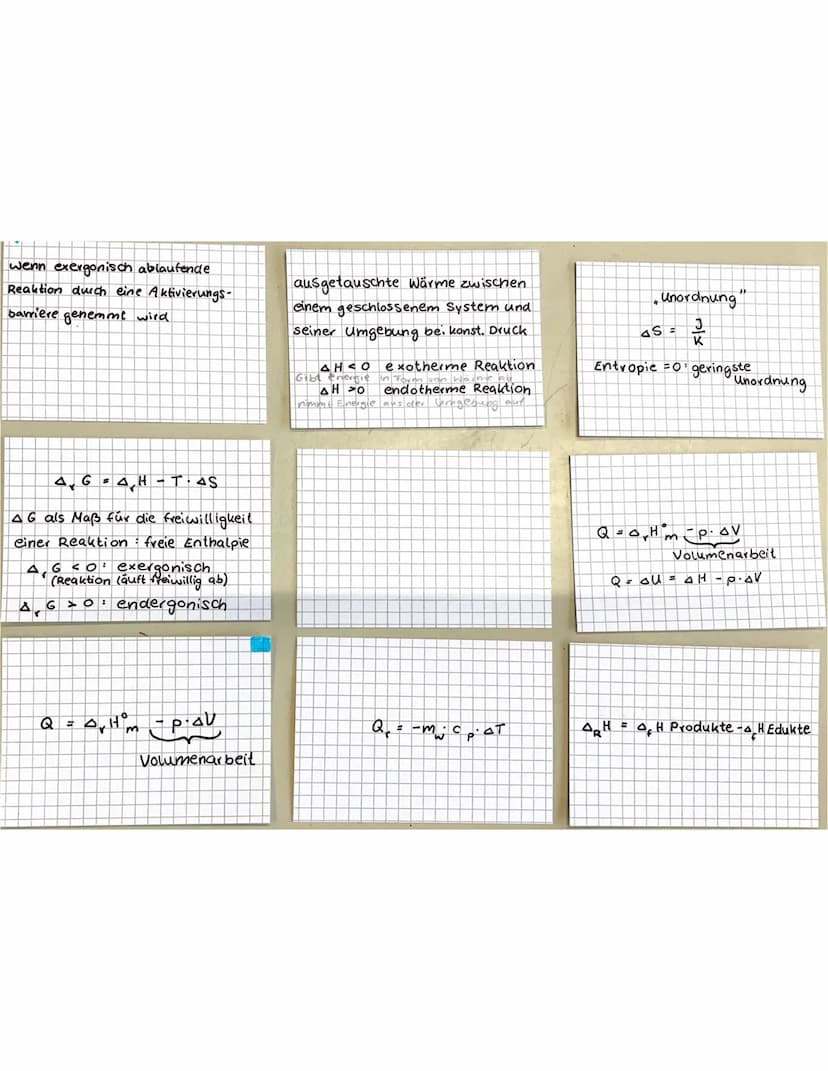 wenn exergonisch ablaufende
Reaktion durch eine Aktivierungs-
barriere genemmt wird
ausgetauschte Wärme zwischen
einem geschlossenem System und
seiner Umgebung bei konst. Druck
ΔH < 0 exotherme Reaktion
Gibt Energie in Form von Wärme ab
ΔH > 0 endotherme Reaktion
nimmt Energie aus der Umgebung auf
„Unordnung"
ΔS = J/K
Entropie = 0: geringste
Unordnung
ΔᵣG = ΔᵣH - T · ΔS
ΔG als Maß für die freiwilligkeit
einer Reaktion : freie Enthalpie
ΔᵣG < 0: exergonisch
(Reaktion läuft freiwillig ab)
ΔᵣG > 0: endergonisch
Q = ΔᵣH°m - p · ΔV
Volumenarbeit
Q = ΔU = ΔH - p·ΔV
Q = ΔᵣH°m - p·ΔV
Volumenarbeit
Qᵣ = -m_w · c_p · ΔT
Δ_R H = Δ_f H Produkte - Δ_f H Edukte